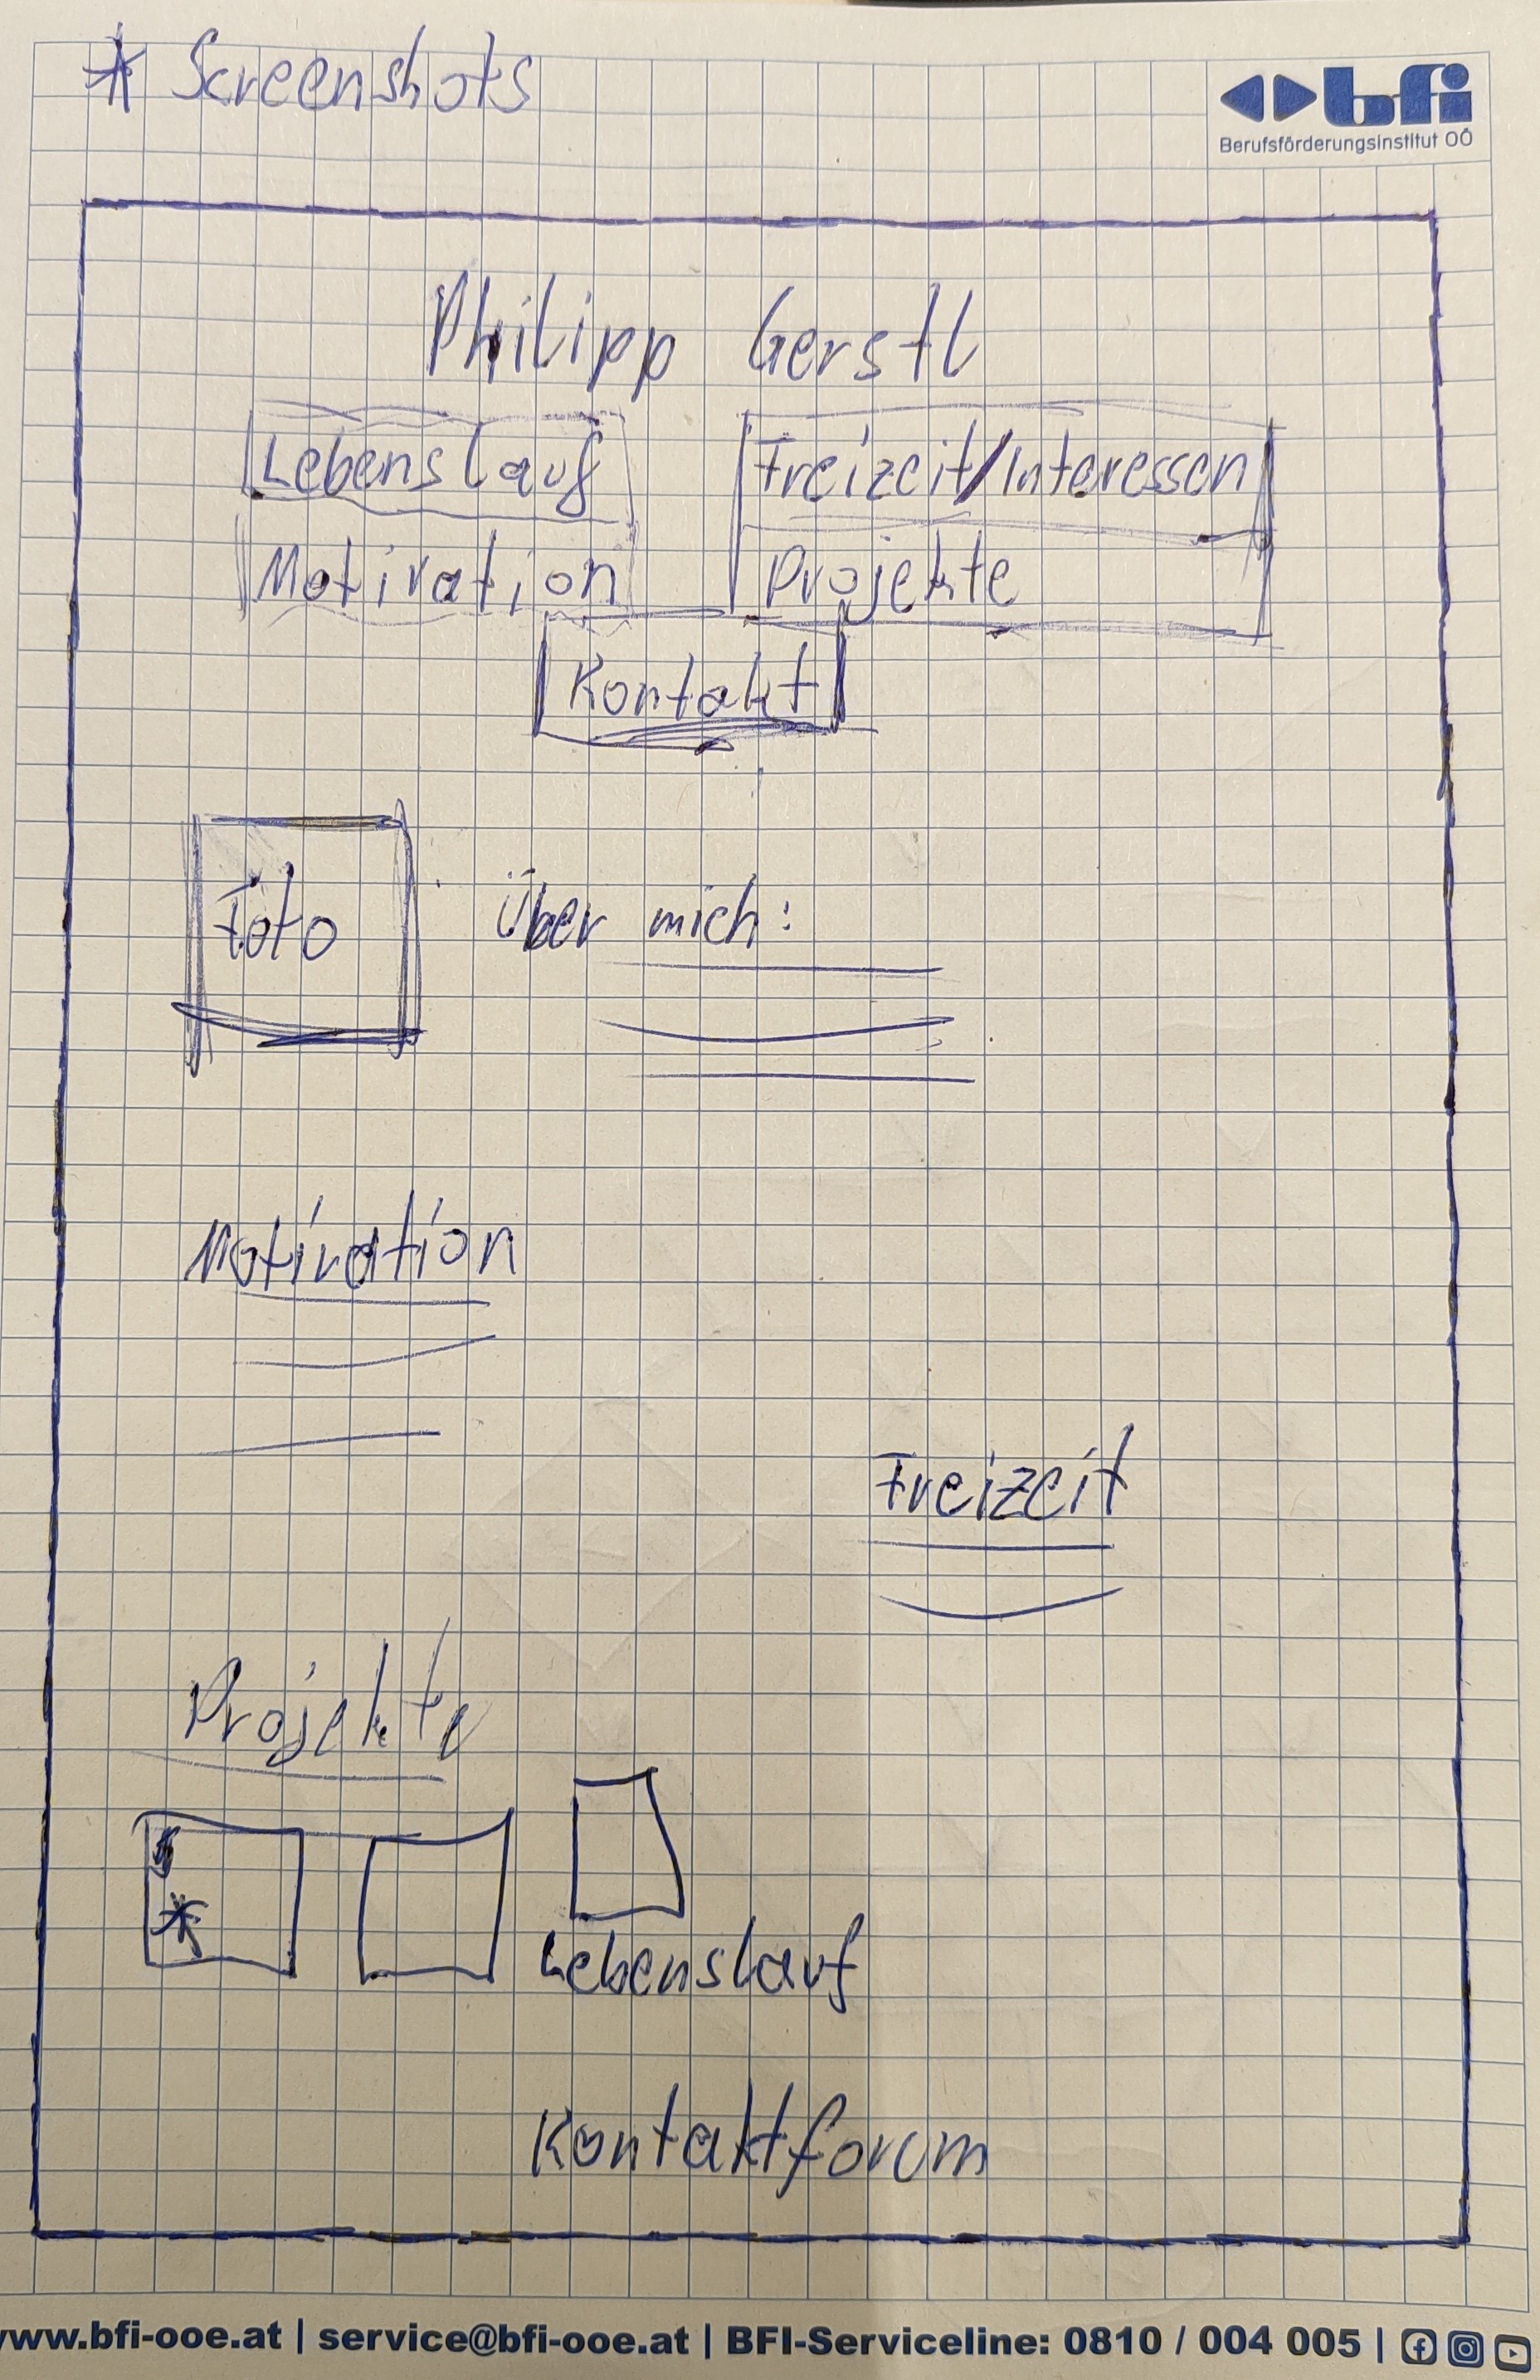 * Screenshots
bfi
Berufsförderungsinstitut OÖ
Philipp Gerstl
Lebenslauf
Freizeit/Interessen
Motivation
Projekte
Kontakt
Foto
Über mich:
Motivation
Freizeit
Projekte
*
Lebenslauf
Kontaktforum
www.bfi-ooe.at | service@bfi-ooe.at | BFI-Serviceline: 0810 / 004 005 |